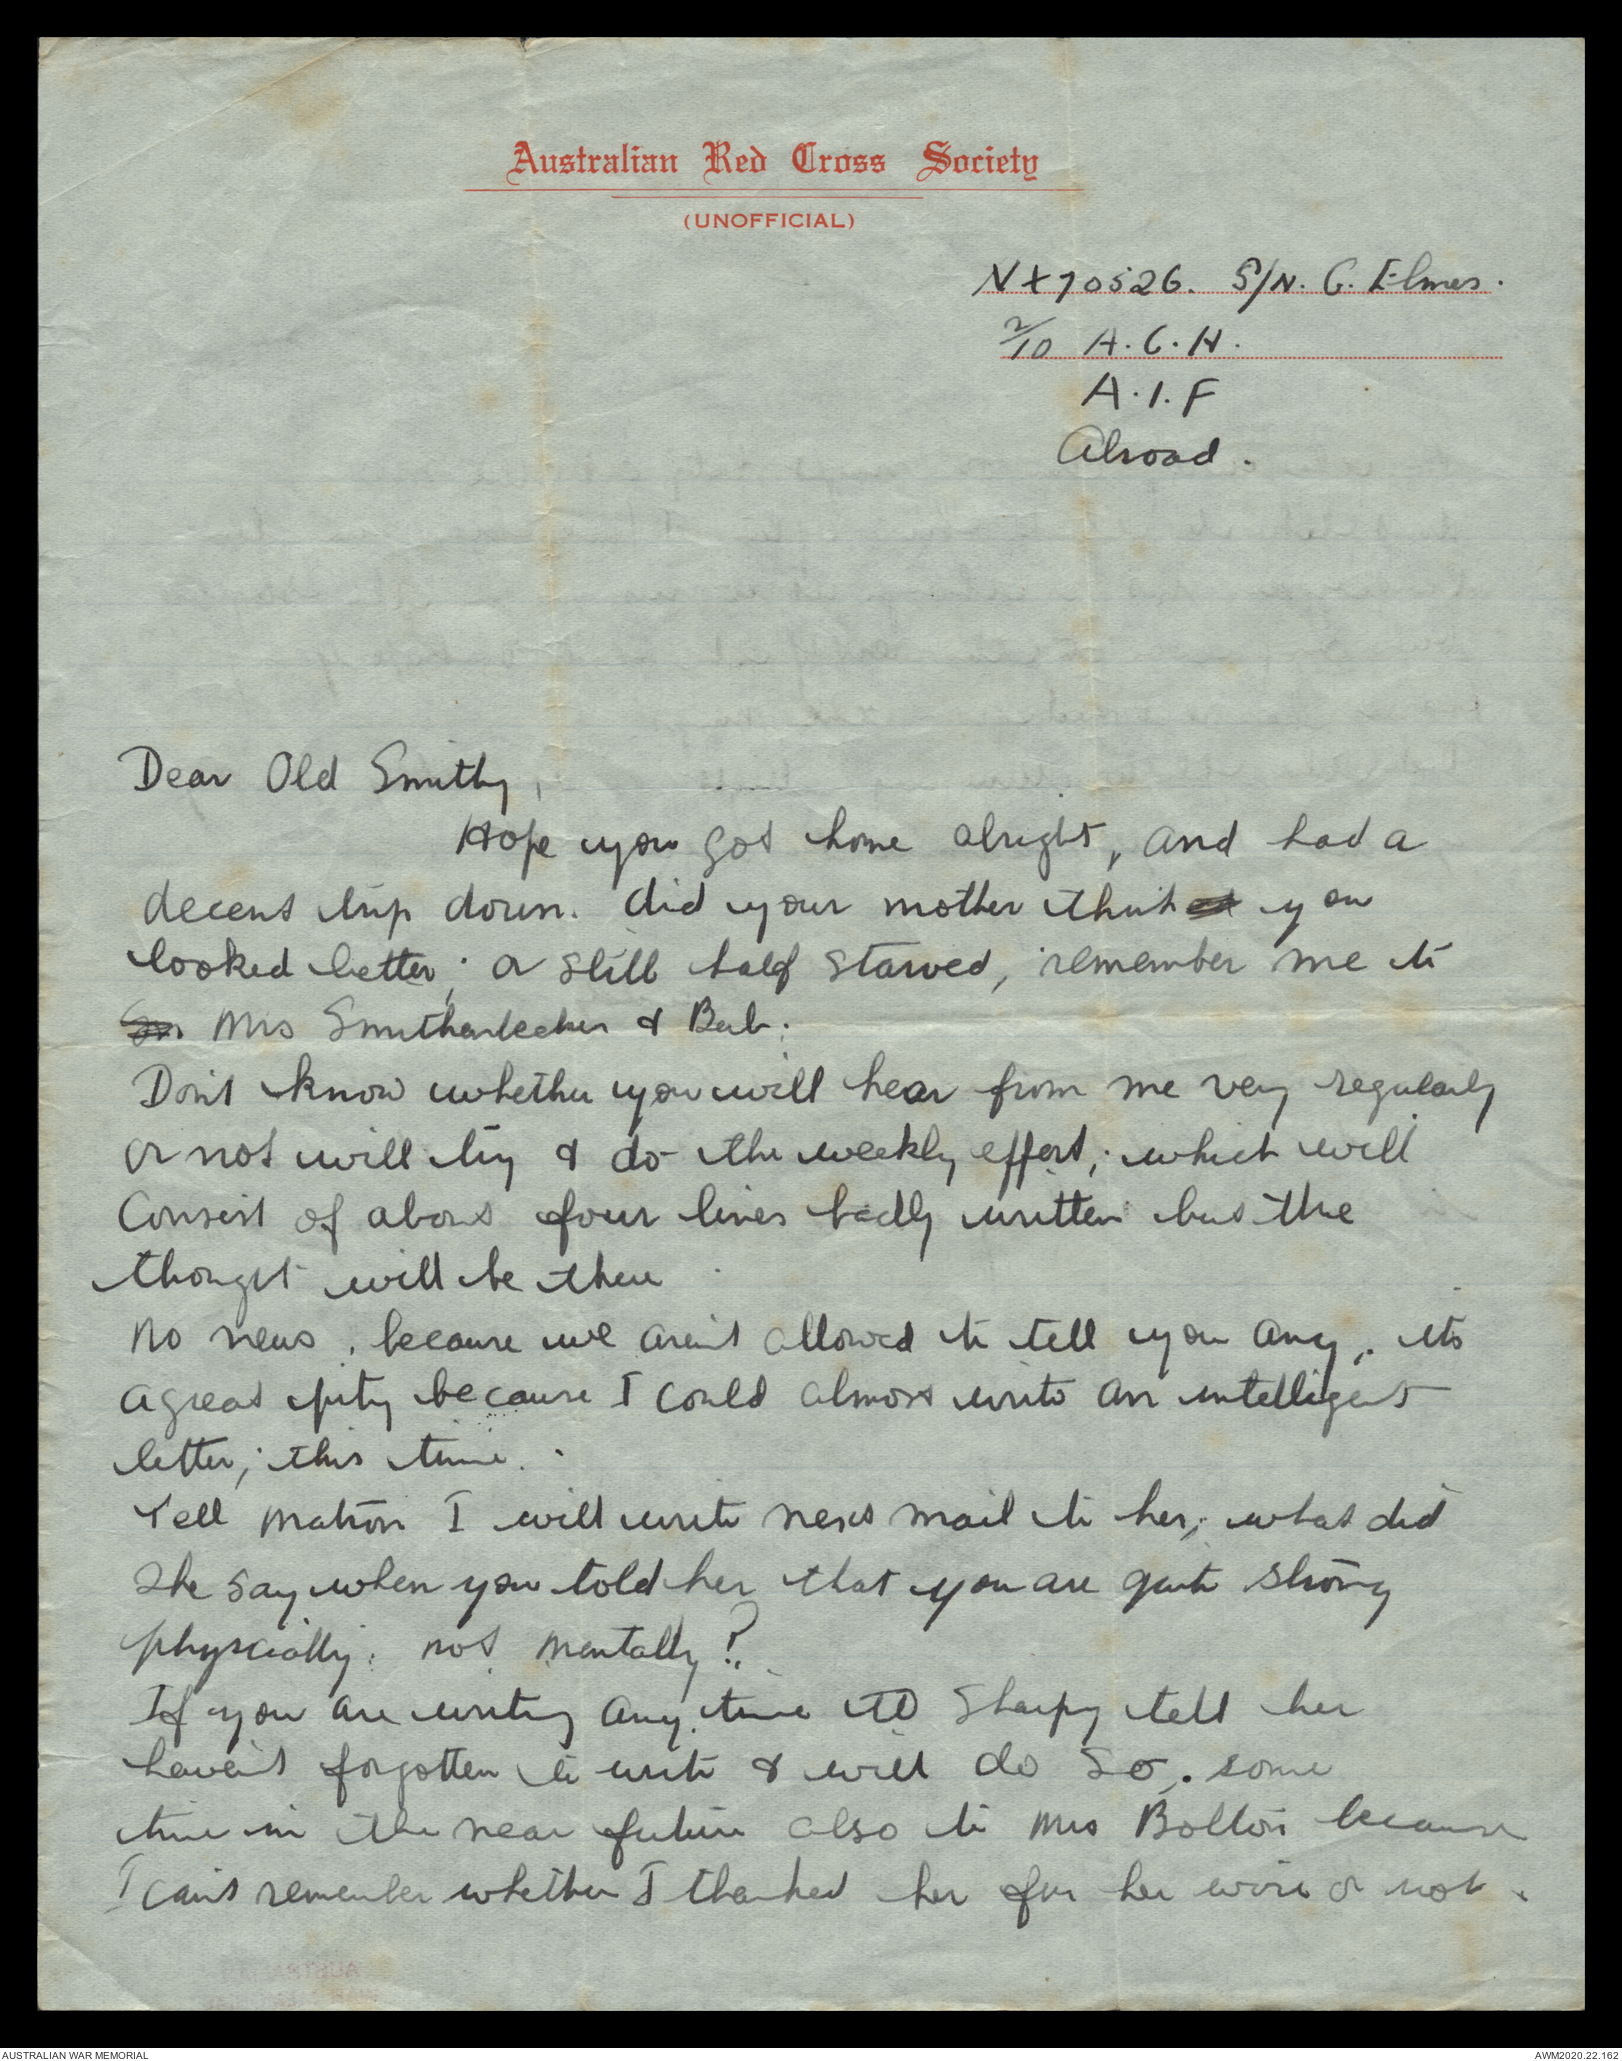 Australian Red Cross Society
(UNOFFICIAL)
NX70526. S/N. G. Elmes.
2/10 A.G.H.
A.I.F
Abroad.
Dear Old Smithy,
Hope you got home alright, and had a
decent trip down. did your mother think you
looked better; or still half starved, remember me to
Mrs Smithenbecker & Bub.
Don't know whether you will hear from me very regularly
or not will try & do the weekly effort; which will
consist of about four lines badly written but the
thought will be there
No news, because we aren't allowed to tell you any, its
a great pity because I could almost write an intelligent
letter; this time.
Tell Matron I will write next mail to her; what did
she say when you told her that you are quite strong
physcially; not mentally?
If you are writing any time to Sharpy tell her
haven't forgotten to write & will do so, some
time in the near future also to Mrs Bolton because
I can't remember whether I thanked her for her wire or not.
AUSTRALIAN WAR MEMORIAL
AWM2020.22.162